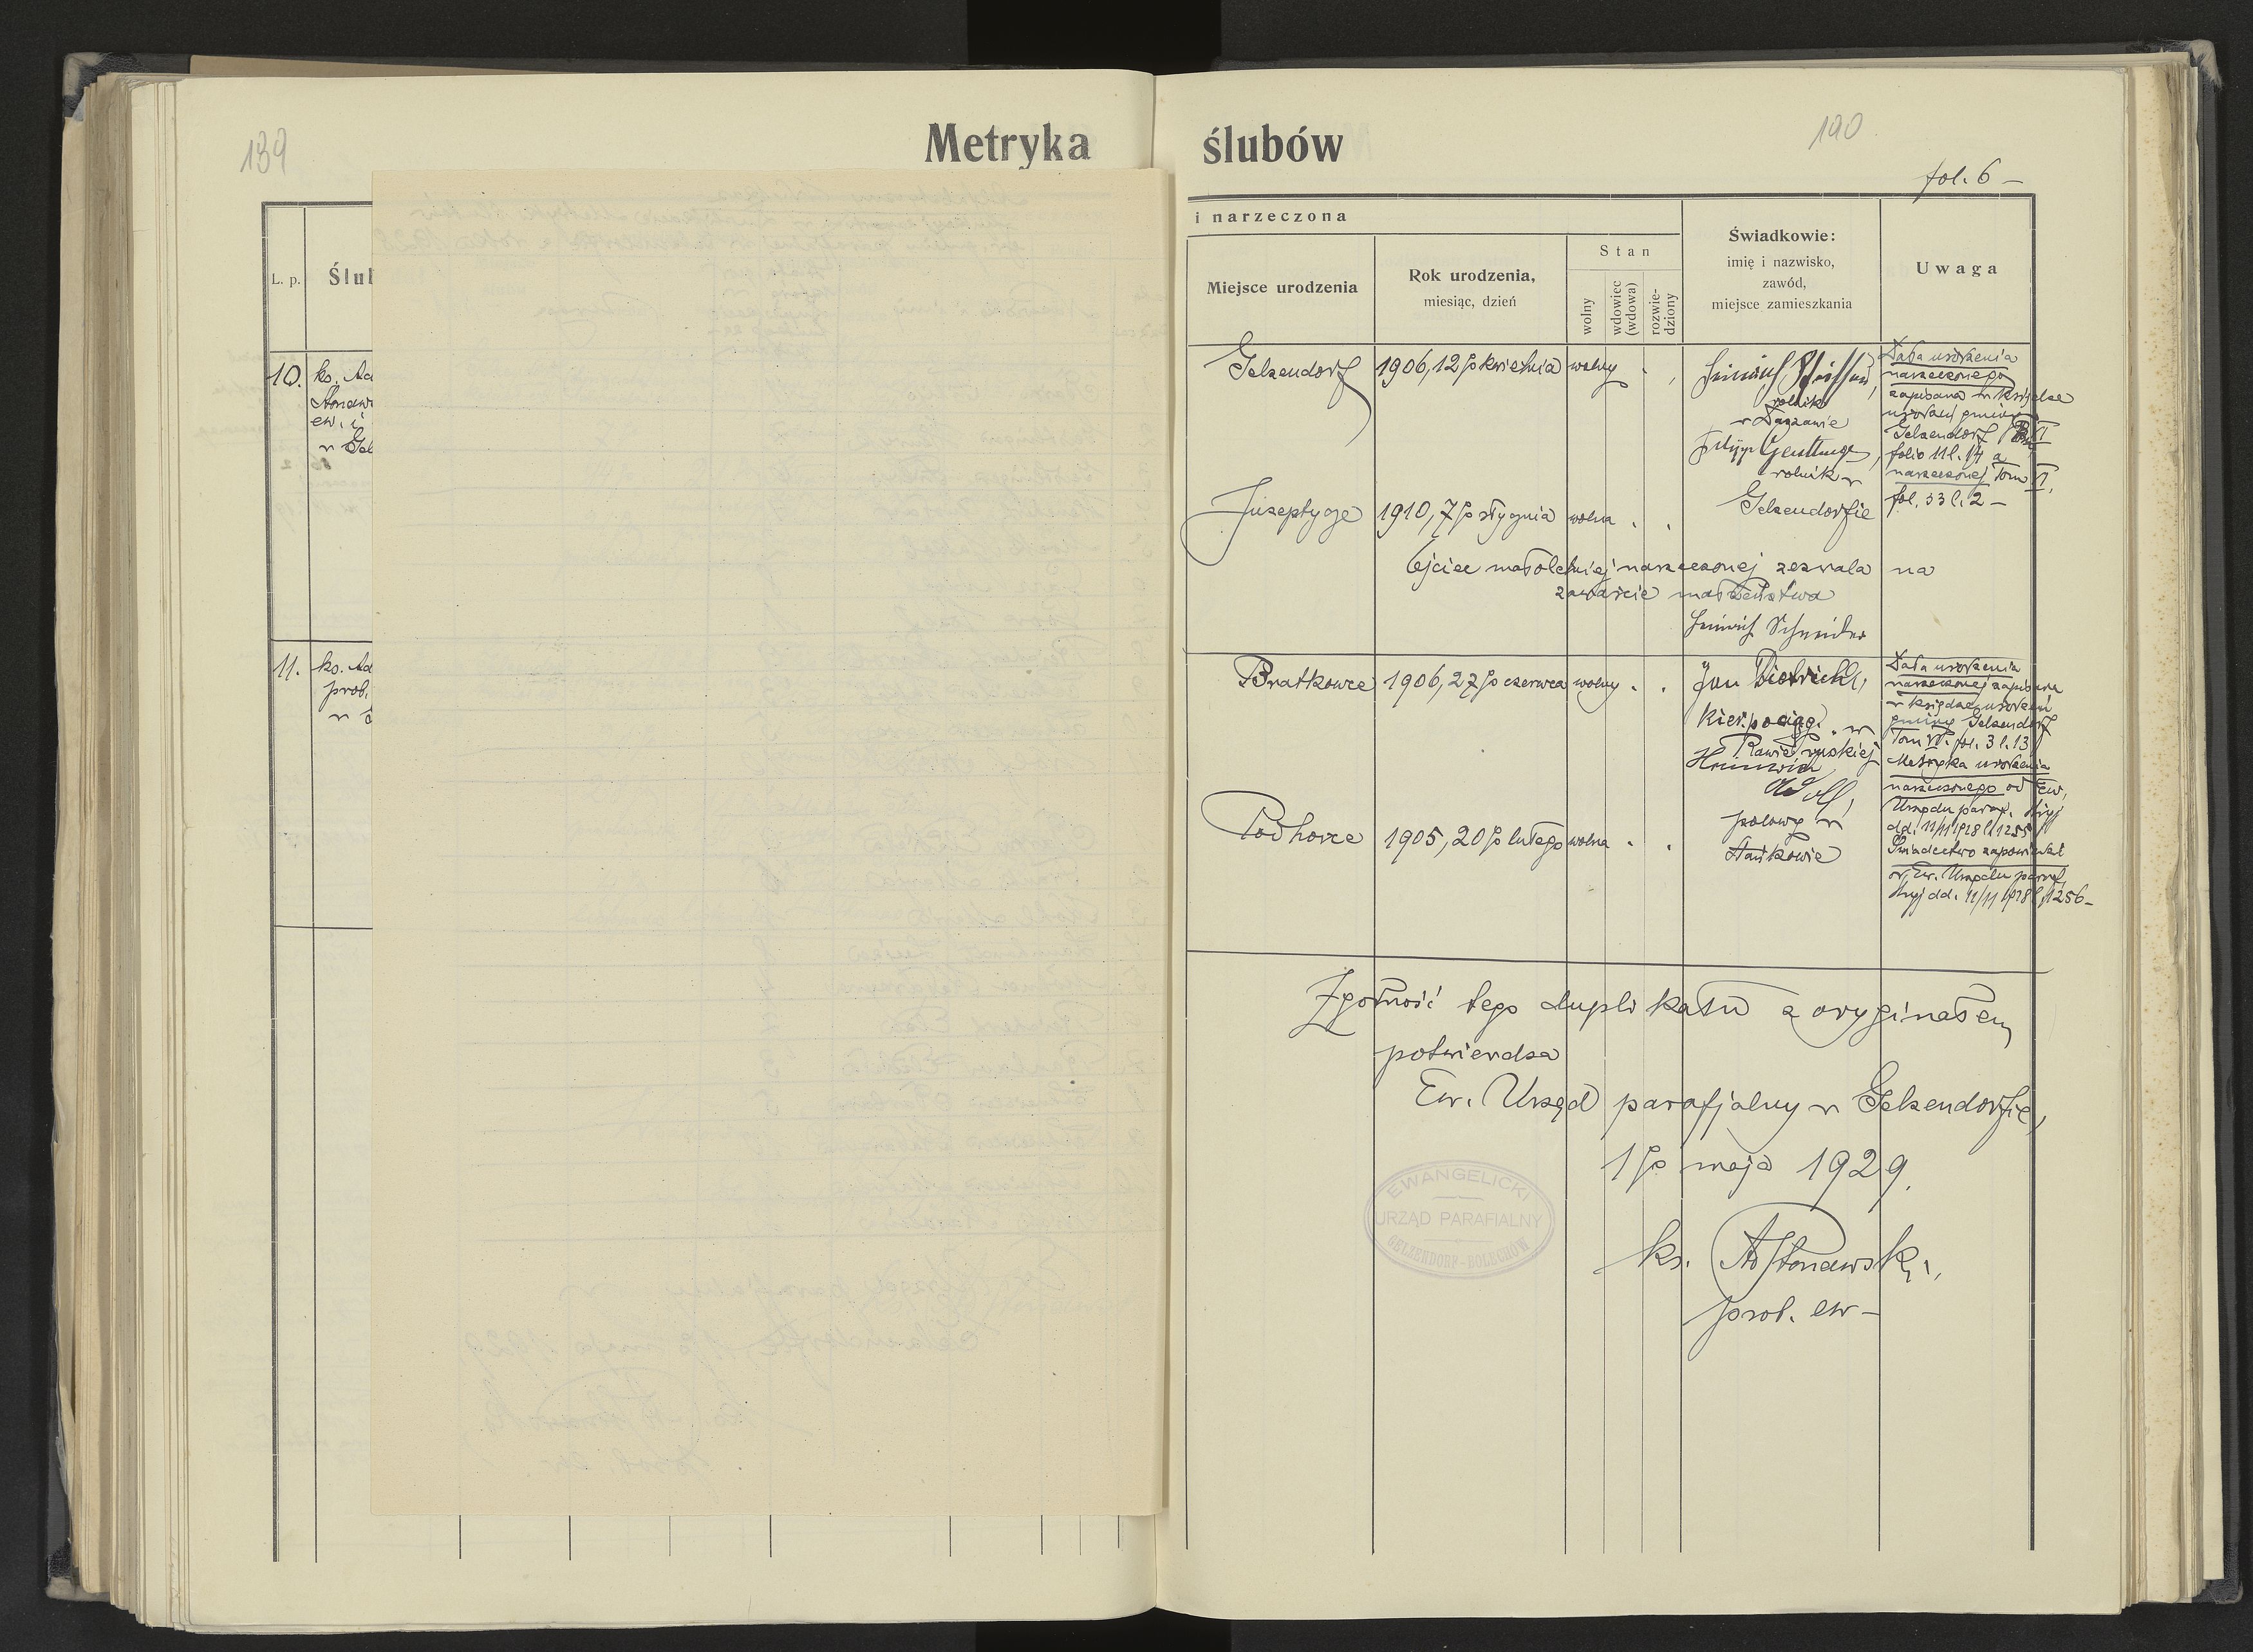 139
Metryka
L. p.
Ślu
10. ks. Ad
ew. i
w Gel
11. ks. Ad
prob.
w
ślubów
190
fol. 6 –
i narzeczona
Miejsce urodzenia
Rok urodzenia,
miesiąc, dzień
Stan
wolny
wdowiec
(wdowa)
rozwie-
dziony
Świadkowie:
imię i nazwisko,
zawód,
miejsce zamieszkania
Uwaga
Gelsendorf
1906, 12/go kwietnia
wolny
Heinrich
rolnik
w Daszawie
rolnik w
Gelsendorfie
Data urodzenia
narzeczonego
zapisana w księdze
urodzeń gminy
Gelsendorf
folio 11 l. 14 a
narzeczonej Tom VI.
fol. 53 l. 2 –
Juseptycze
1910, 7/go stycznia
wolna
Ojciec małoletniej narzeczonej zezwala na
zawarcie małżeństwa
Heinrich Schneider
Bratkowce
1906, 27/go czerwca
wolny
Jan Dietrich,
Kier. pociąg. w
Rawie ruskiej
polowy w
Stańkowie
Data urodzenia
narzeczonej zapisana
w księdze urodzeń
gminy Gelsendorf
Tom VI. fol. 3 l. 13
Metryka urodzenia
narzeczonego od Ew.
Urzędu paraf. Stryj
dd. 11/11 1928 l. 1255
Świadectwo zapowiedzi
Ew. Urzędu paraf.
Stryj dd. 11/11 1928 l. 1256 –
Podhorce
1905, 20/go lutego
wolna
Zgodność tego duplikatu z oryginałem
potwierdza
Ew. Urząd parafjalny w Gelsendorfie,
1/go maja 1929.
EWANGELICKI
URZĄD PARAFIALNY
GELZENDORF-BOLECHÓW
ks. Ad Stonawski,
prob. ew –